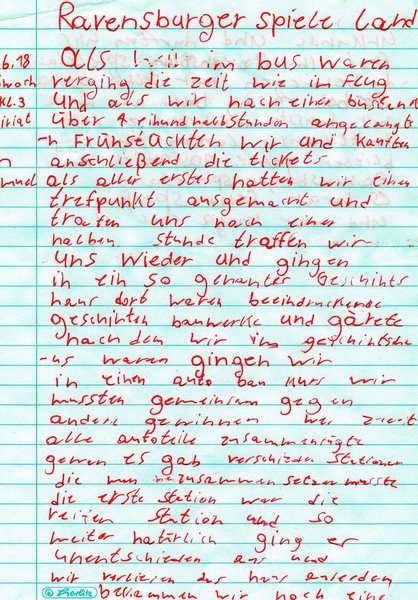 Ravensburger spiele land
6.18 Als wir im bus waren
verging die zeit wie im flug
Kl.3 und als wir nach einer
über 4 halbstunden angelangt
wir und kauften
anschließend die tickets
als aller erstes hatten wir einen
trefpunkt ausgemacht und
trafen uns nach einer
halben stunde traffen wir
uns wieder und gingen
in ein so genantes Geschihts
haus dort waren beeindruckende
geschihten bauwerke und gärete
nach dem wir im geschihtsha
-us waren gingen wir
in einen auto bau kurs wir
mussten gemeinsam gegen
andere gewinnen wer zuerst
alle autoteile zusammenfügte
es gab verschieden Stationen
die man zusammen setzen musste
die erste station war die
reifen station und so
weiter natürlich ging er
unentschieden aus und
wir verlieren das haus
bekammen wir noch eine